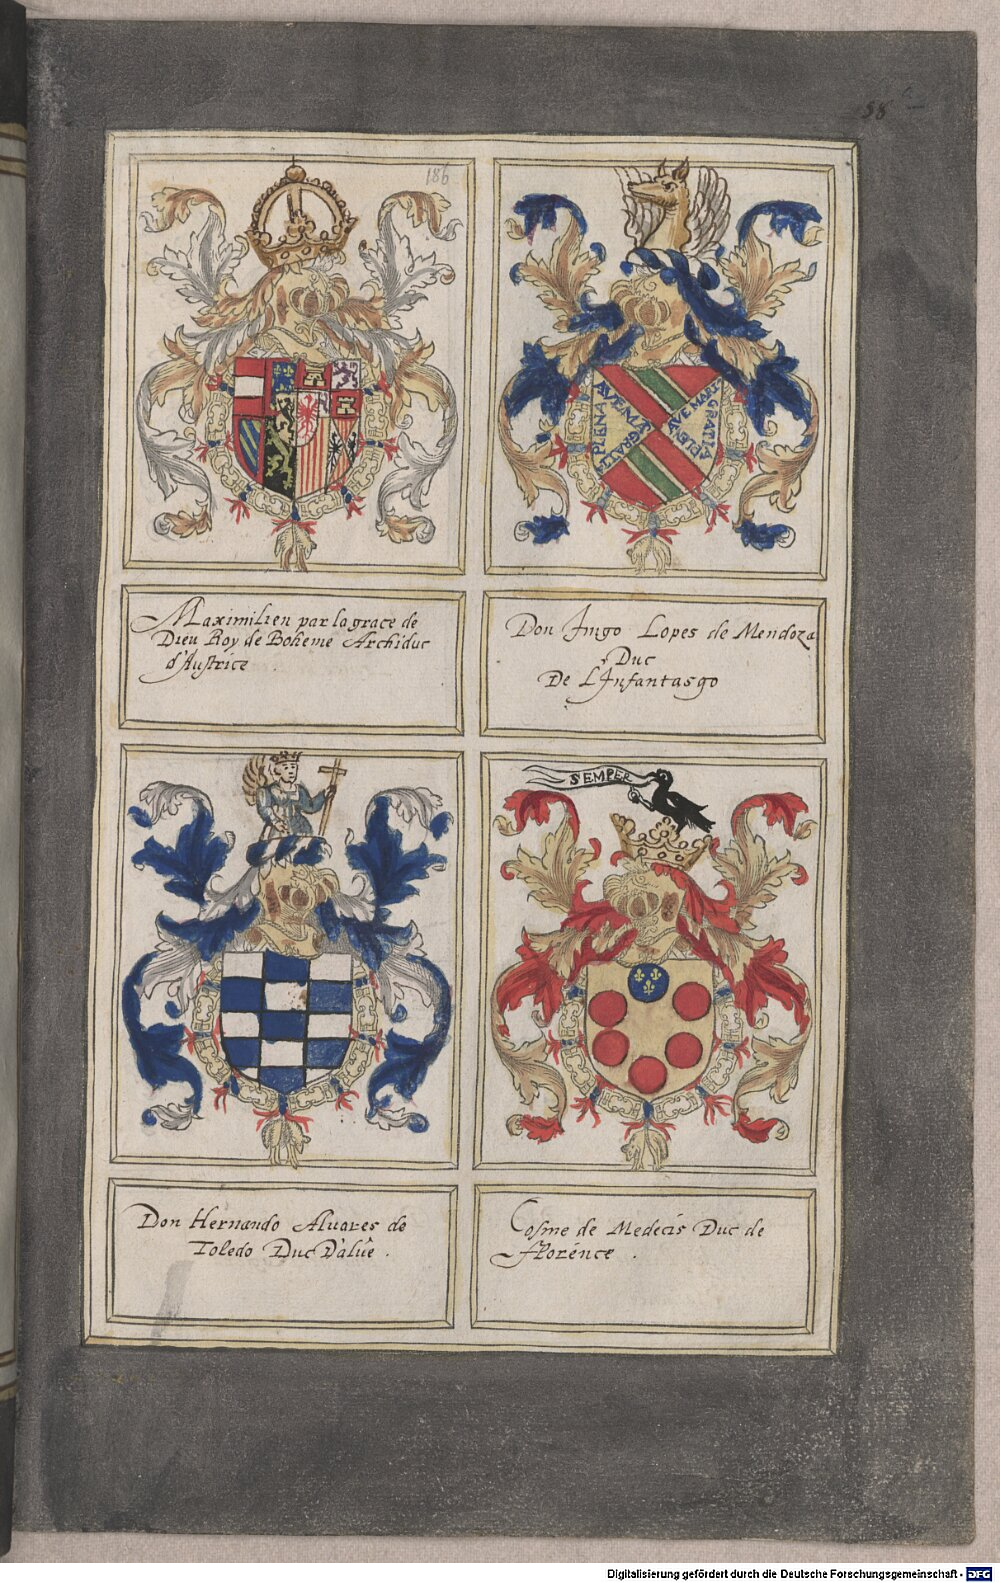 58
186
AVE MA
GRATI
PLENA
AVE MARI
GRATIA
PLENA
Maximilien par la grace de
Dieu Roy de Boheme Archiduc
d'Austrice
Don Inigo Lopes de Mendoza
Duc
De L'Infantasgo
SEMPER
Don Hernando Alvares de
Toledo Duc D'alue .
Cosme de Medecis Duc de
florence .
Digitalisierung gefördert durch die Deutsche Forschungsgemeinschaft - DFG